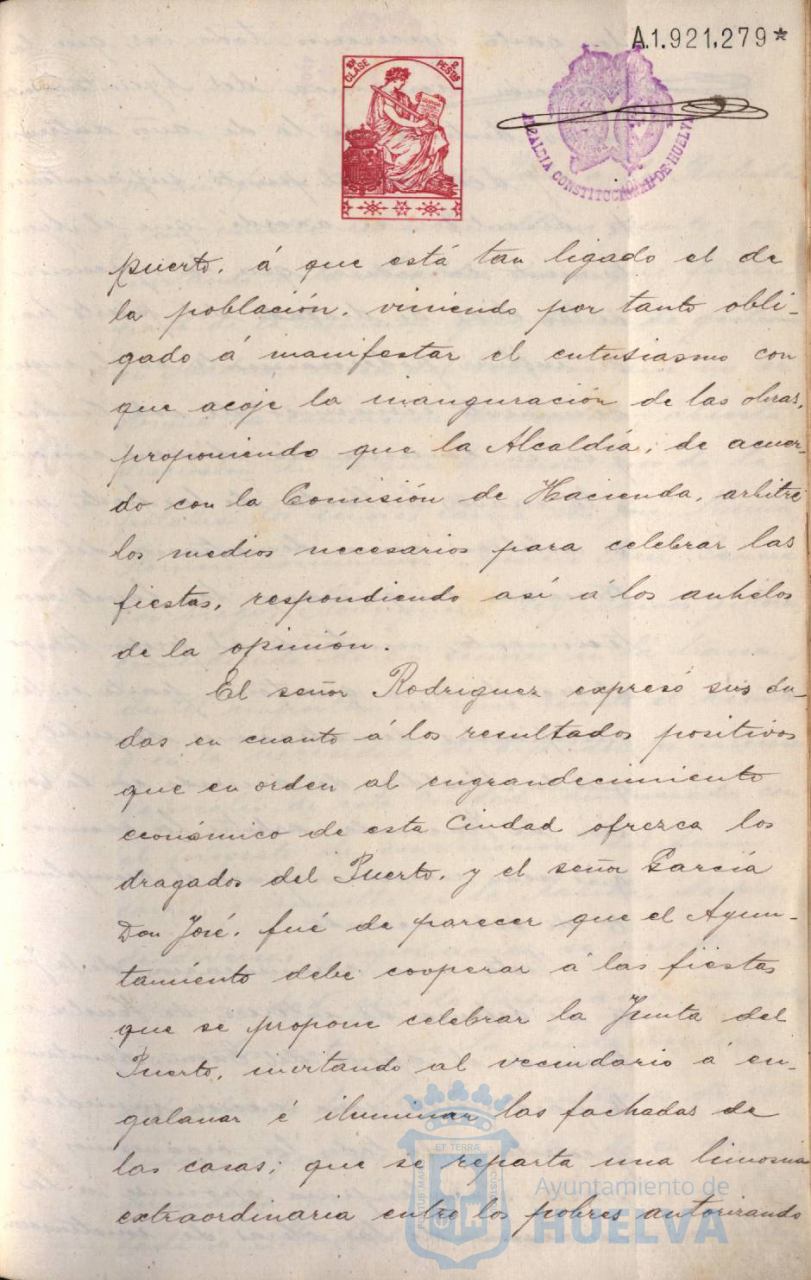 A.1.921,279*
10ª CLASE 2 PESTAS
ALCALDIA CONSTITUCIONAL DE HUELVA
puerto, á que está tan ligado el de
la población, viniendo por tanto obli-
gado á manifestar el entusiasmo con
que acoje la inauguración de las obras,
proponiendo que la Alcaldía, de acuer-
do con la Comisión de Hacienda, arbitre
los medios necesarios para celebrar las
fiestas, respondiendo así á los anhelos
de la opinión.
El señor Rodriguez expresó sus du-
das en cuanto á los resultados positivos
que en orden al engrandecimiento
económico de esta Ciudad ofrezca los
dragados del Puerto, y el señor García
Don José, fué de parecer que el Ayun-
tamiento debe cooperar á las fiestas
que se propone celebrar la Junta del
Puerto, invitando al vecindario á en-
galanar é iluminar las fachadas de
las casas; que se reparta una limosna
extraordinaria entre los pobres autorizando
ET TERRÆ
Ayuntamiento de
HUELVA